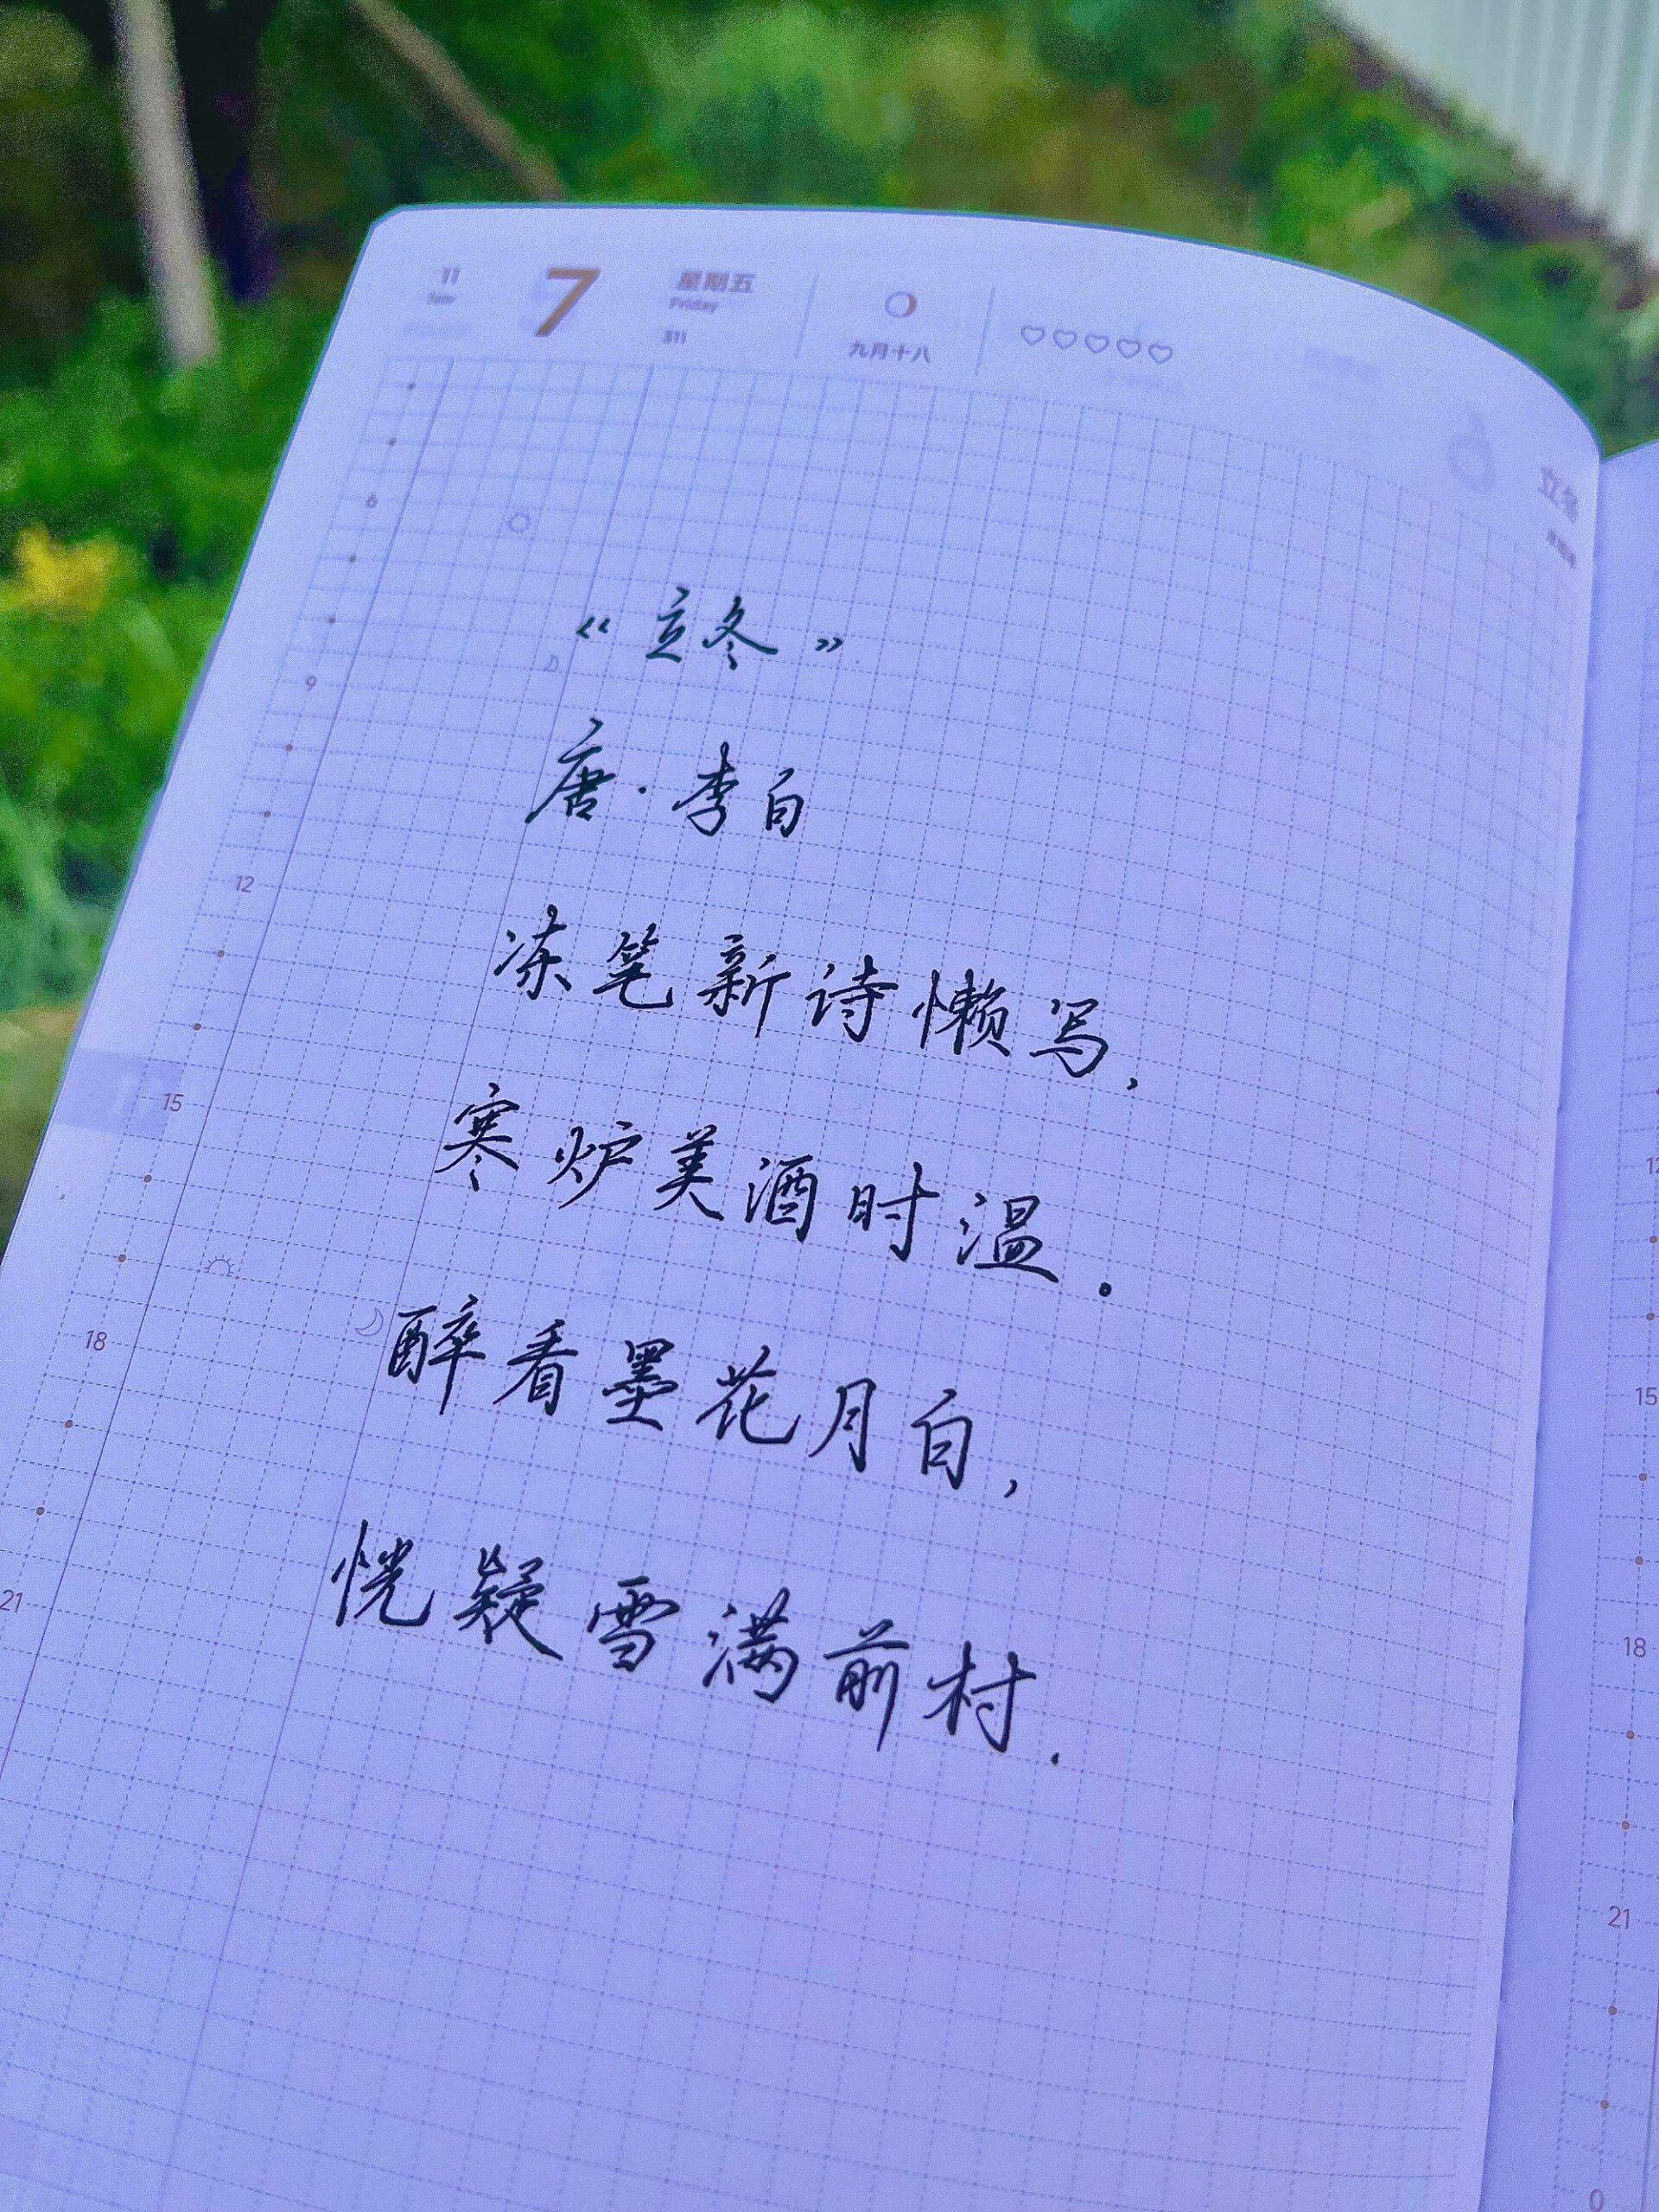 11 7 星期五 九月十八
Friday
311
6
立冬
《立冬》
唐·李白
冻笔新诗懒写,
寒炉美酒时温。
醉看墨花月白,
恍疑雪满前村.
6
9
12
15
18
21
12
15
18
21
0